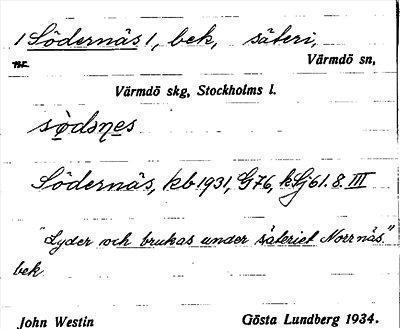 1 Södernäs 1, bek, säteri,
Värmdö sn,
Värmdö skg, Stockholms l.
sȯ̀dsn̥es
Södernäs, kb 1931, G76, kSj 61.8. III
"Lyder och brukas under säteriet Norrnäs."
bek
John Westin Gösta Lundberg 1934.